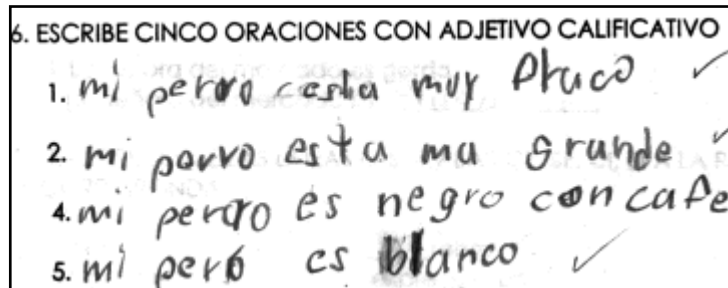 6. ESCRIBE CINCO ORACIONES CON ADJETIVO CALIFICATIVO
1. mi perro cesta muy fluco
2. mi porvo esta mu grande
4. mi perro es negro con cafe
5. mi pero es blanco